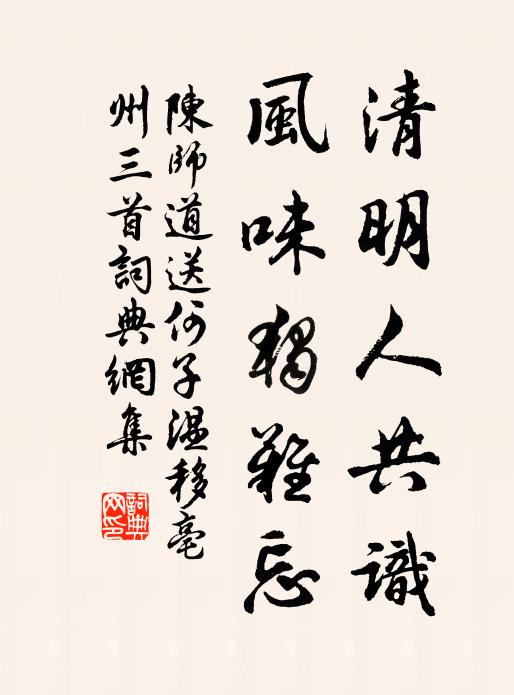 清明人共識
風味獨難忘
陳師道送何子溫移亳
州三首詞典網集
詞典
网印